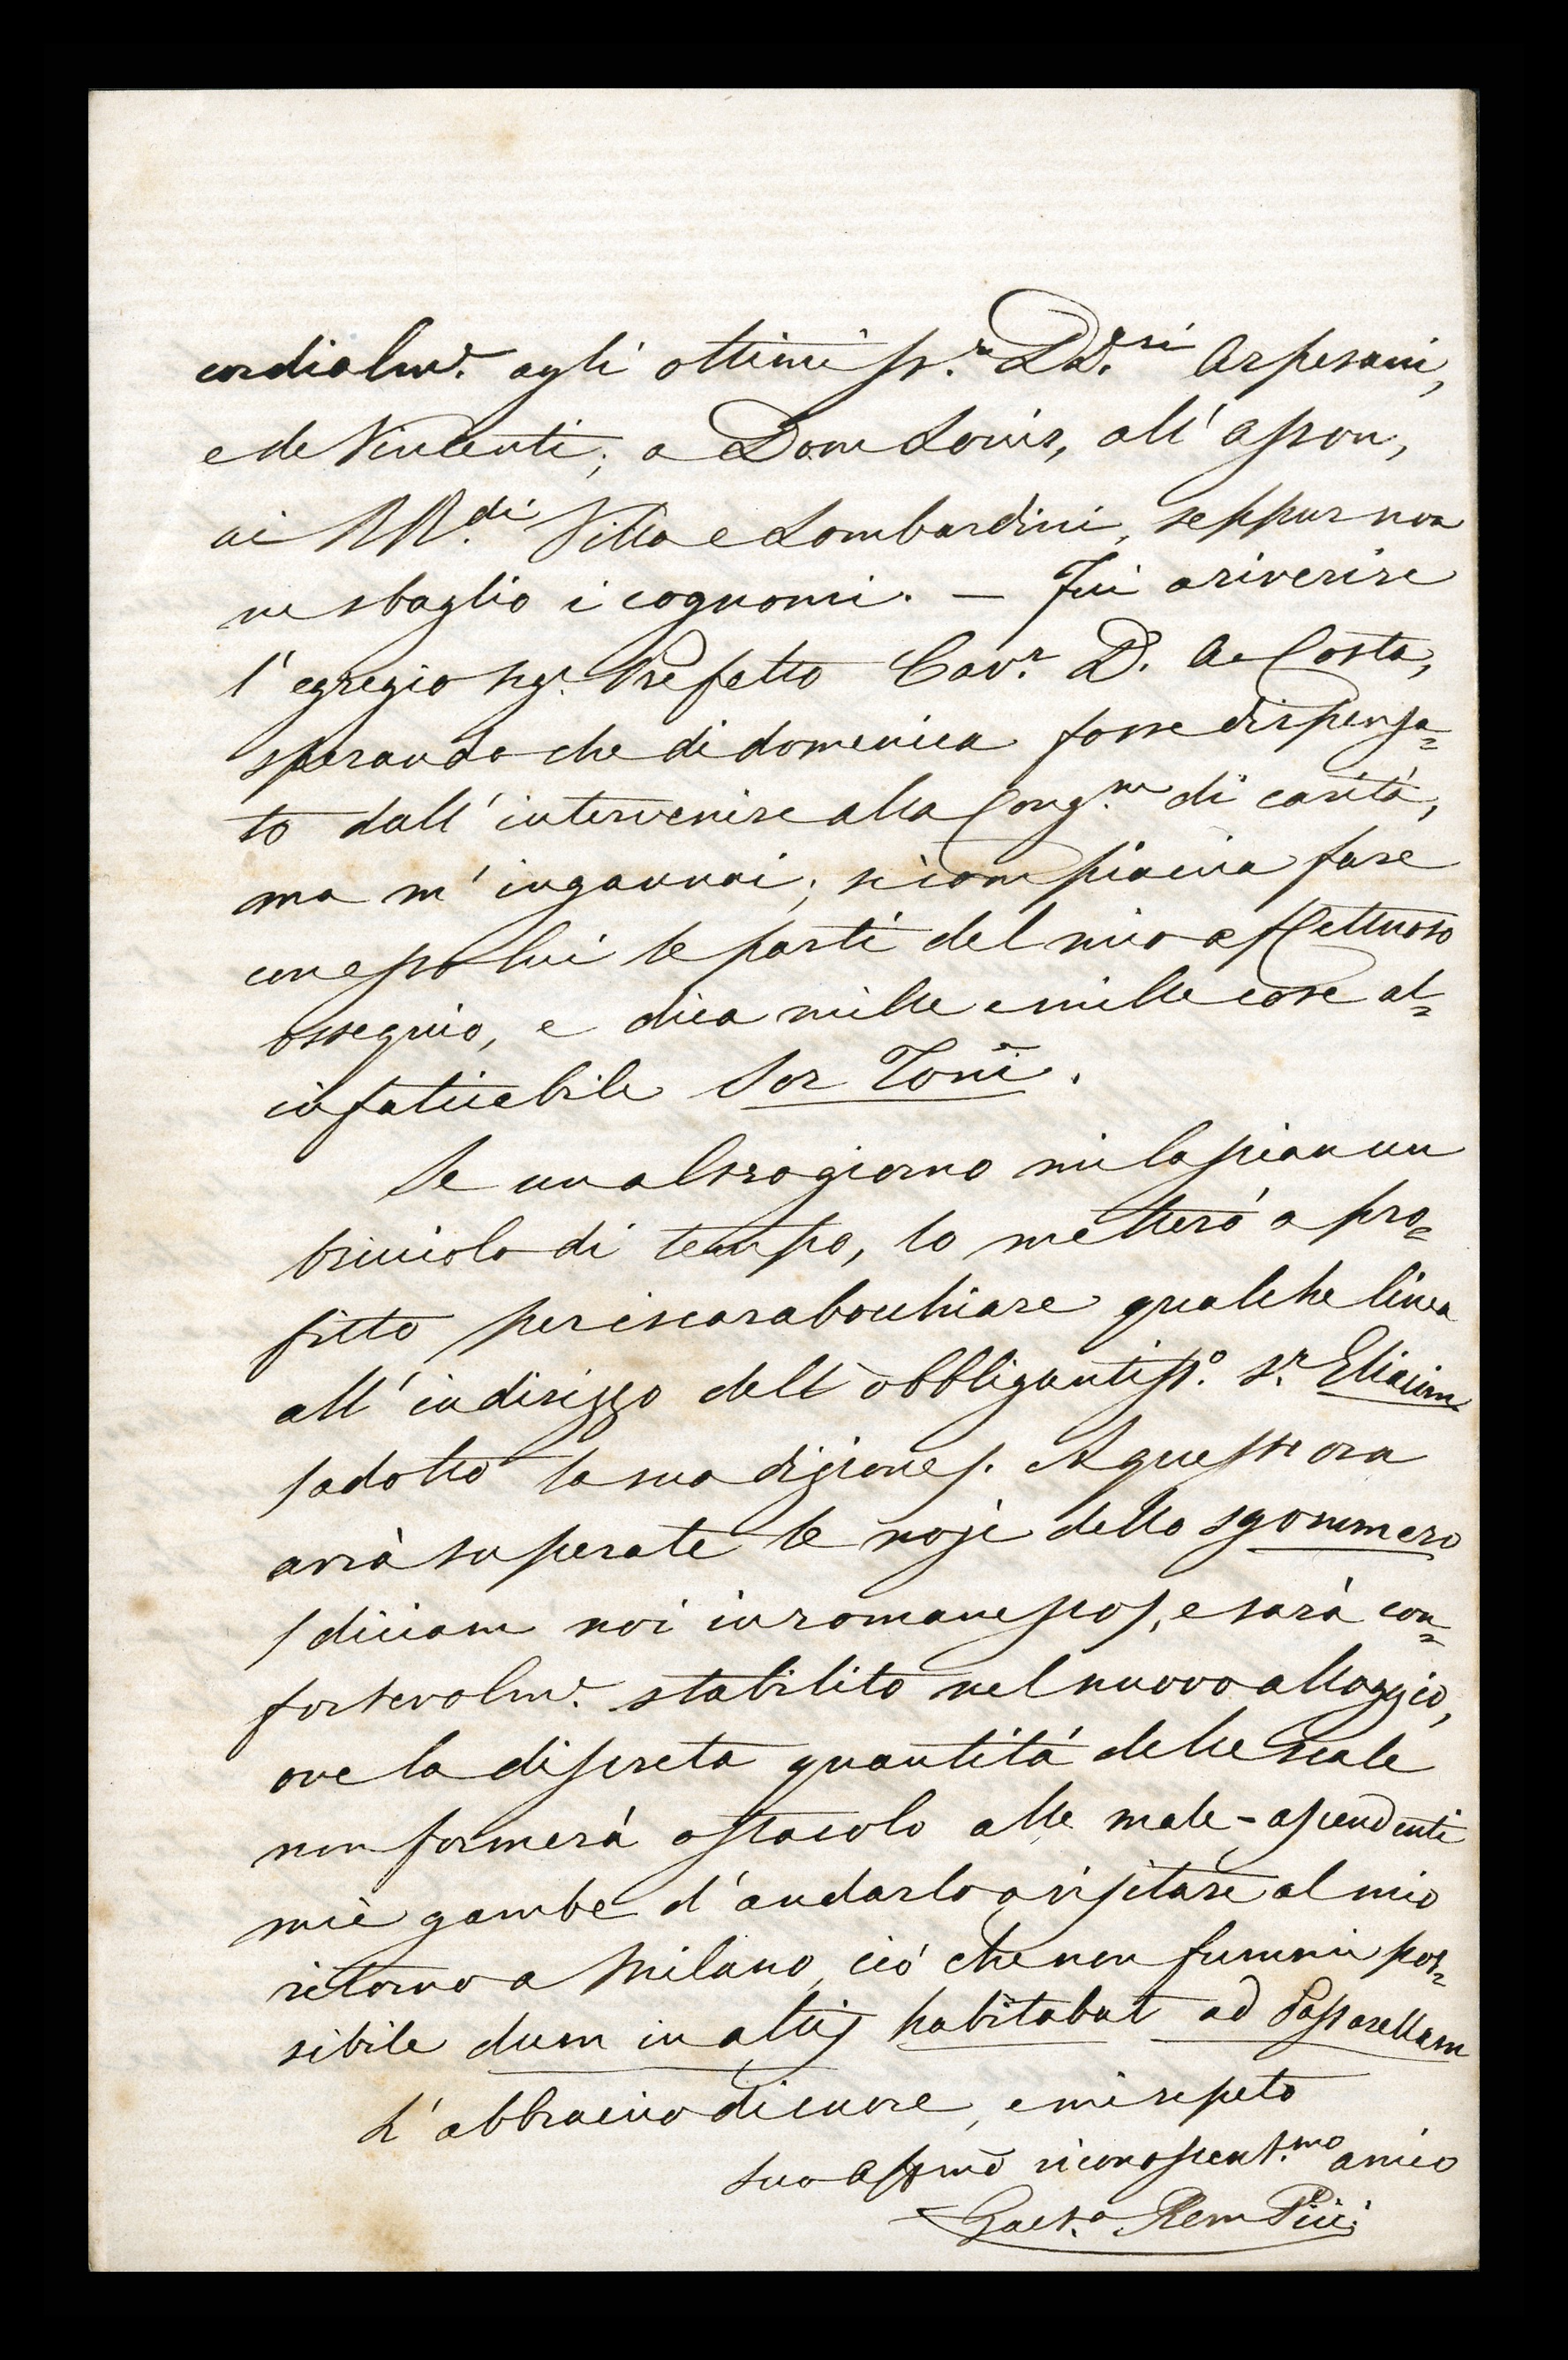 cordialm.e agli ottimi ss.ri DD.ri Arpesani,
e de Vincenti; a Dom Louis, all'Asson,
ai RR.di Villa e Lombardini, seppur non
ne sbaglio i cognomi. — Fui a riverire
l'egregio sigr. Prefetto Cav.r D. A. Costa,
sperando che di domenica fosse dispensa=
to dall'intervenire alla Cong.ne di carità,
ma m'ingannai; si compiacia fare
con esso lui le parti del mio affettuoso
ossequio, e dica mille e mille cose al=
infaticabile Sor Toni.
Se un altro giorno mi lascian un
briciolo di tempo, lo metterò a pro=
fitto per iscarabocchiare qualche linea
all'indirizzo dell'obbligantiss.o s.r Eliacim
/adotto la sua dizione/. A quest'ora
avrà superate le noje dello sgommero
/diciam noi in romanesco/, e sarà con=
fortevolm.e stabilito nel nuovo alloggio,
ove la discreta quantità delle scale
non formerà ostacolo alle male-ascendenti
mie gambe d'andarlo a visitare al mio
ritorno a Milano, ciò che non fummi pos=
sibile dum in altis habitabat ad Passarellam
L'abbraccio di cuore, e mi repeto
suo Affmo riconoscent.mo amico
Gaet.o Rem Picci